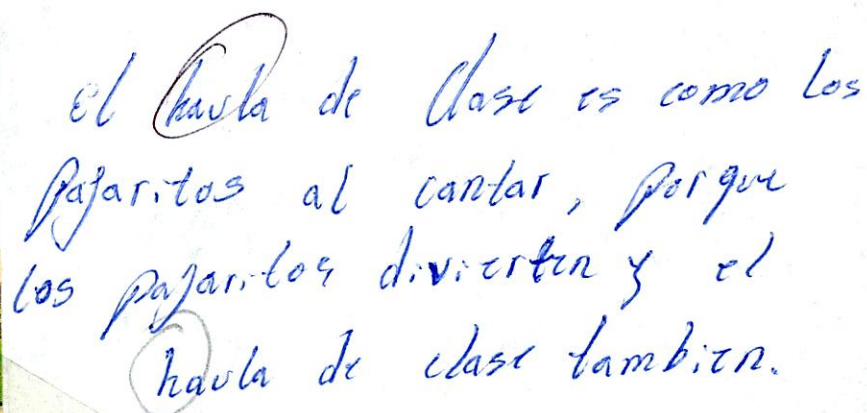 el haula de Clase es como los
pajaritos al cantar, porque
los pajaritos divierten y el
haula de clase tambien.